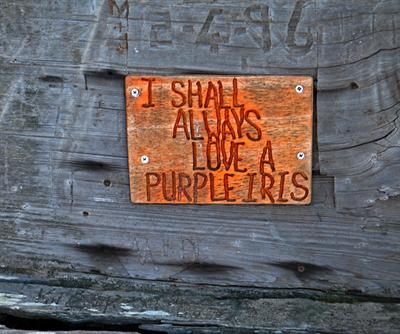 2-4-96
I SHALL
ALWAYS
LOVE A
PURPLE IRIS